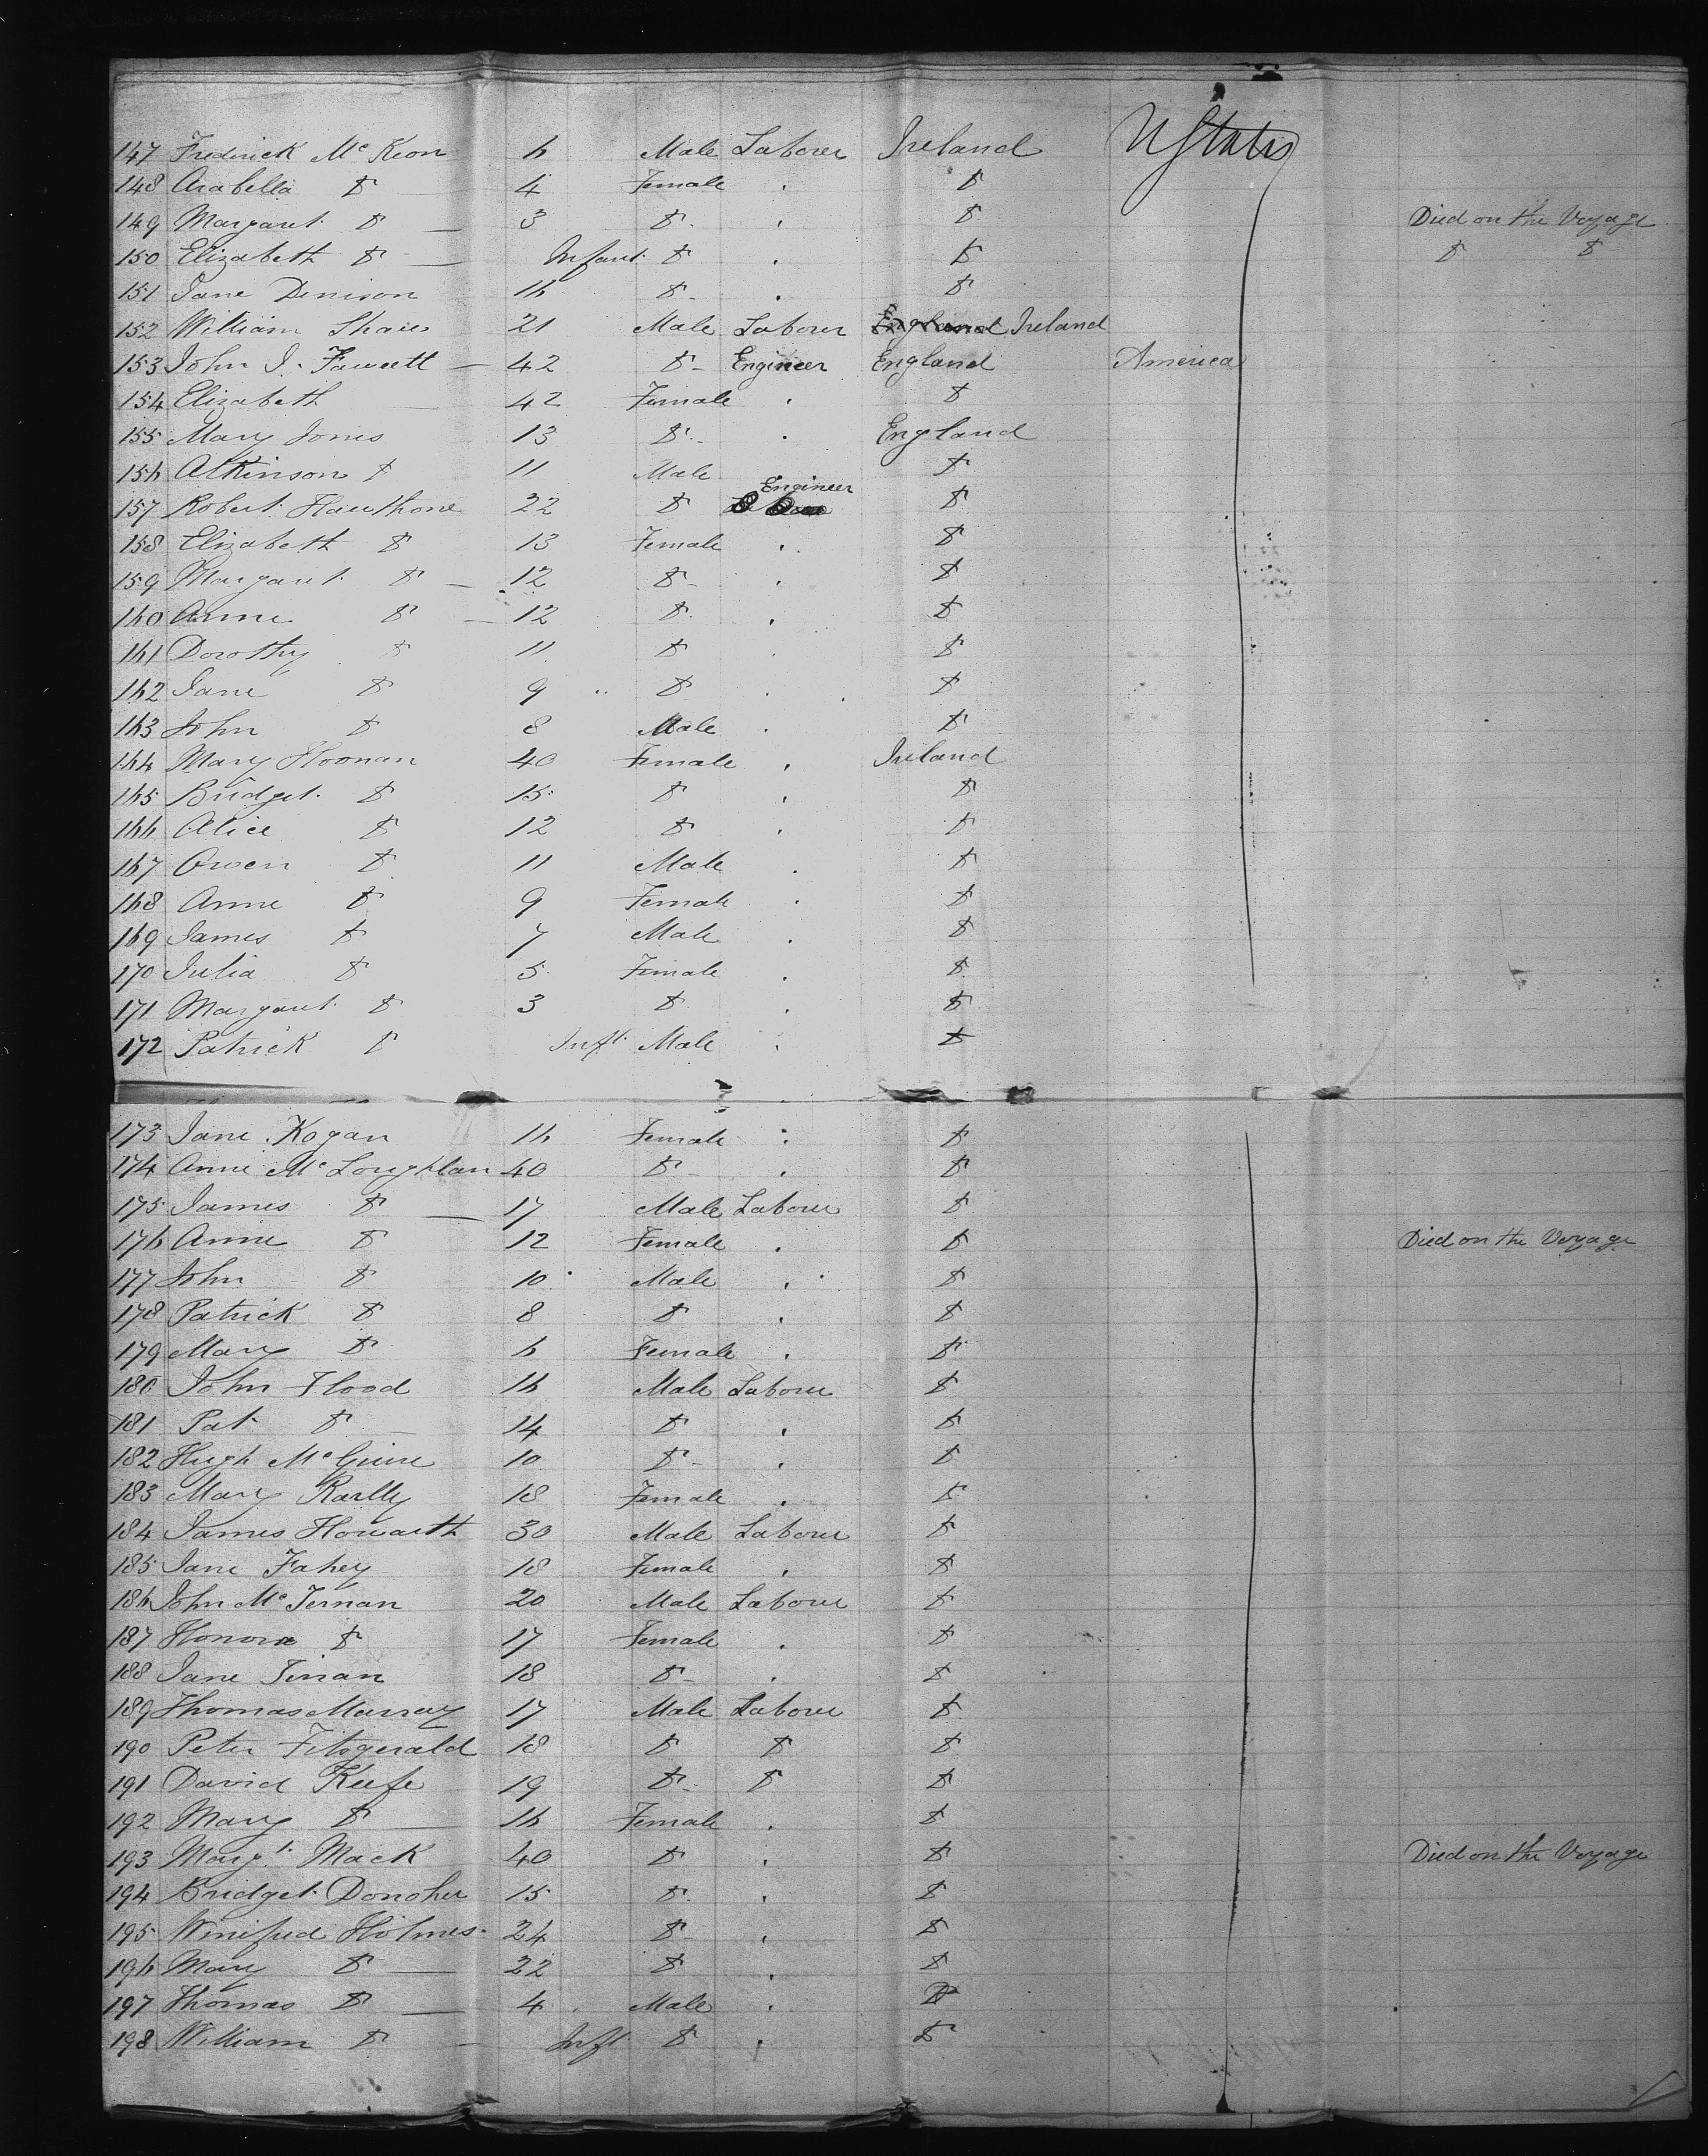 147 Frederick Mc Keon 6 Male Laborer Ireland U States
148 Arabella Do 4 Female Do
149 Margaret Do 3 Do Do Died on the Voyage
150 Elizabeth Do Infant Do Do Do Do
151 Jane Denison 16 Do Do
152 William Shaw 21 Male Laborer England Ireland
153 John J. Fawcett 42 Do Engineer England America
154 Elizabeth 42 Female Do
155 Mary Jones 13 Do England
156 Atkinson Do 11 Male Do
157 Robert Hawthorne 22 Do Engineer Do
158 Elizabeth Do 13 Female Do
159 Margaret Do 12 Do Do
160 Anne Do 12 Do Do
161 Dorothy Do 11 Do Do
162 Jane Do 9 Do Do
163 John Do 8 Male Do
164 Mary Hoonan 40 Female Ireland
165 Bridget Do 15 Do Do
166 Alice Do 12 Do Do
167 Owen Do 11 Male Do
168 Anne Do 9 Female Do
169 James Do 7 Male Do
170 Julia Do 5 Female Do
171 Margaret Do 3 Do Do
172 Patrick Do Inft Male Do
173 Jane Kogan 16 Female Do
174 Anne Mc Loughlan 40 Do Do
175 James Do 17 Male Laborer Do
176 Anne Do 12 Female Do Died on the Voyage
177 John Do 10 Male Do
178 Patrick Do 8 Do Do
179 Mary Do 6 Female Do
180 John Flood 16 Male Laborer Do
181 Pat Do 14 Do Do
182 Hugh Mc Guire 10 Do Do
183 Mary Rarlly 18 Female Do
184 James Howarth 30 Male Laborer Do
185 Jane Fahey 18 Female Do
186 John Mc Ternan 20 Male Laborer Do
187 Honora Do 17 Female Do
188 Jane Tiran 18 Do Do
189 Thomas Murray 17 Male Laborer Do
190 Peter Fitzgerald 18 Do Do Do
191 David Keefe 19 Do Do Do
192 Mary Do 16 Female Do
193 Margt. Mack 40 Do Do Died on the Voyage
194 Bridget Donoher 15 Do Do
195 Winifred Holmes 24 Do Do
196 Mary Do 22 Do Do
197 Thomas Do 4 Male Do
198 William Do Inft Do Do